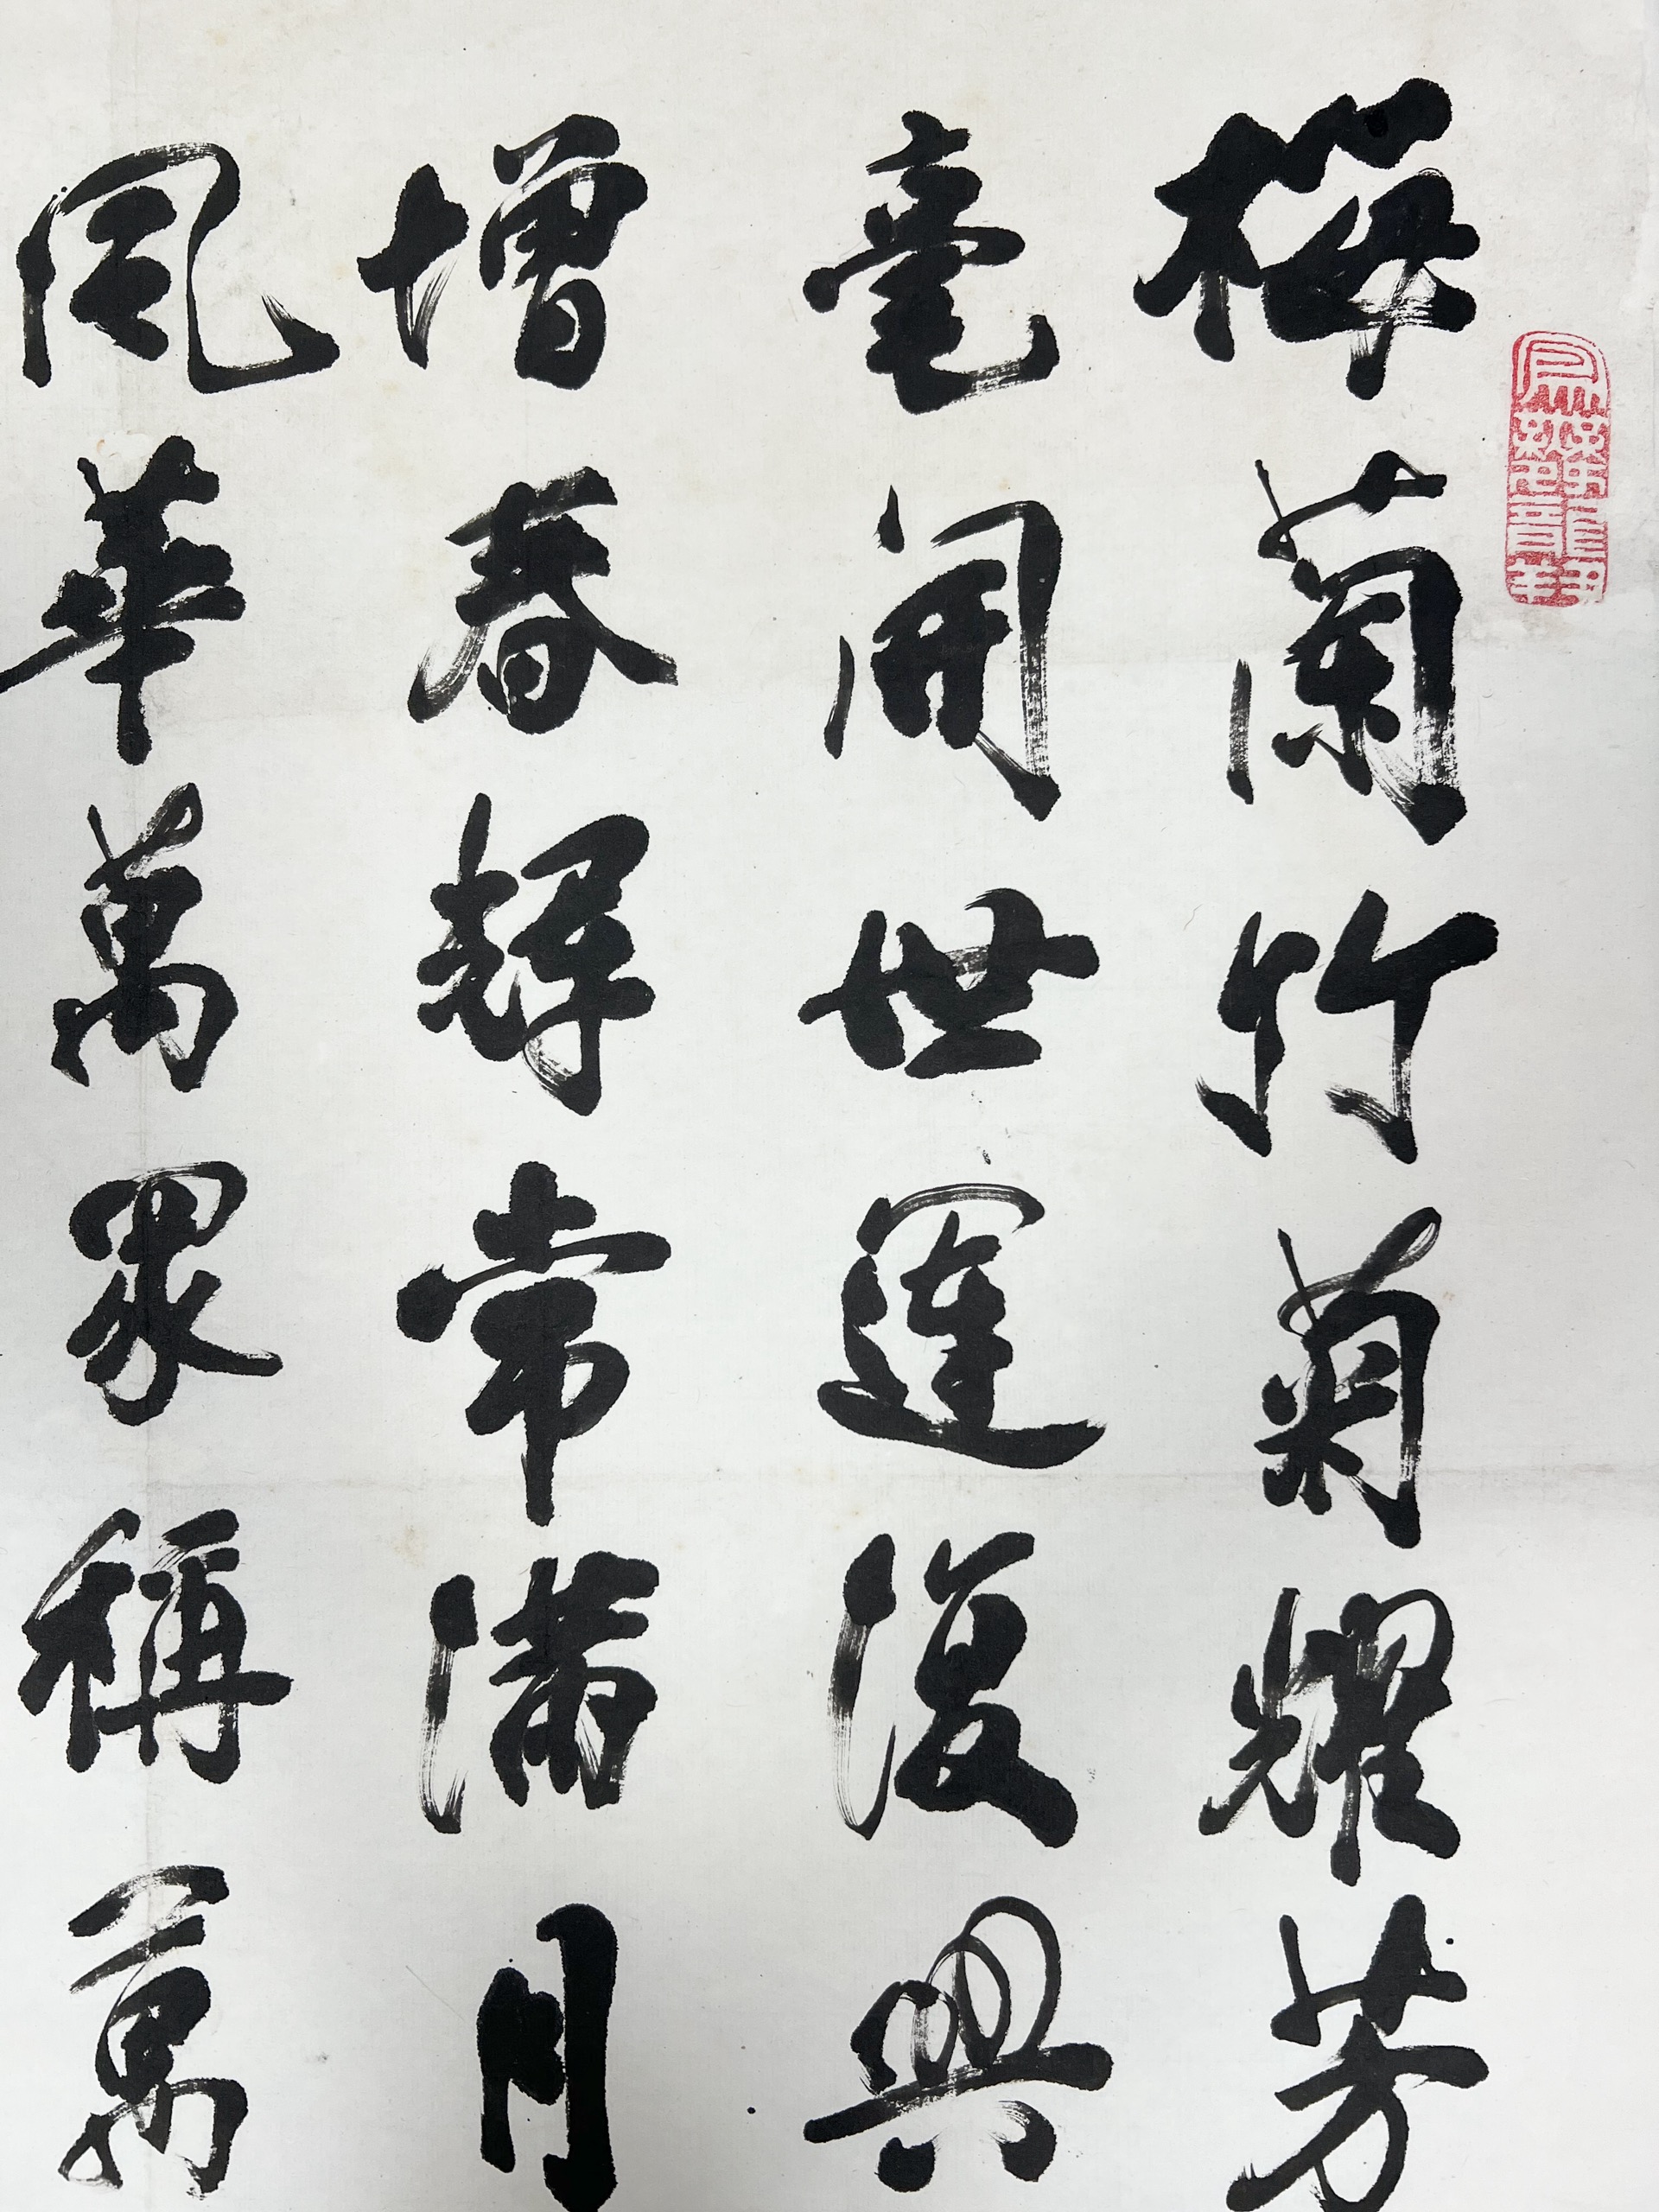 梅蘭竹菊耀芳
毫開世運復興
增春輝常滿月
風華萬眾稱萬